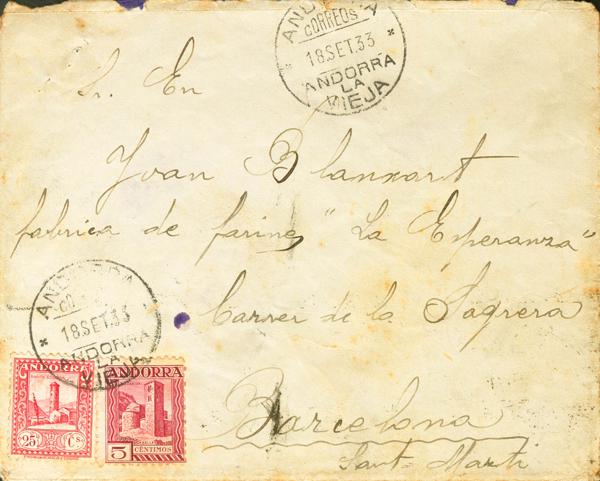 ANDORRA
CORREOS
18 SET.33
ANDORRA
LA
VIEJA
Sr. En
Joan Blanxart
fabrica de farines "La Esperanza"
Carrer de la Sagrera
Barcelona
Sant Marti
ANDORRA
18 SET.33
ANDORRA
LA
VIEJA
ANDORRA
25 Cs
ANDORRA
5
CÉNTIMOS